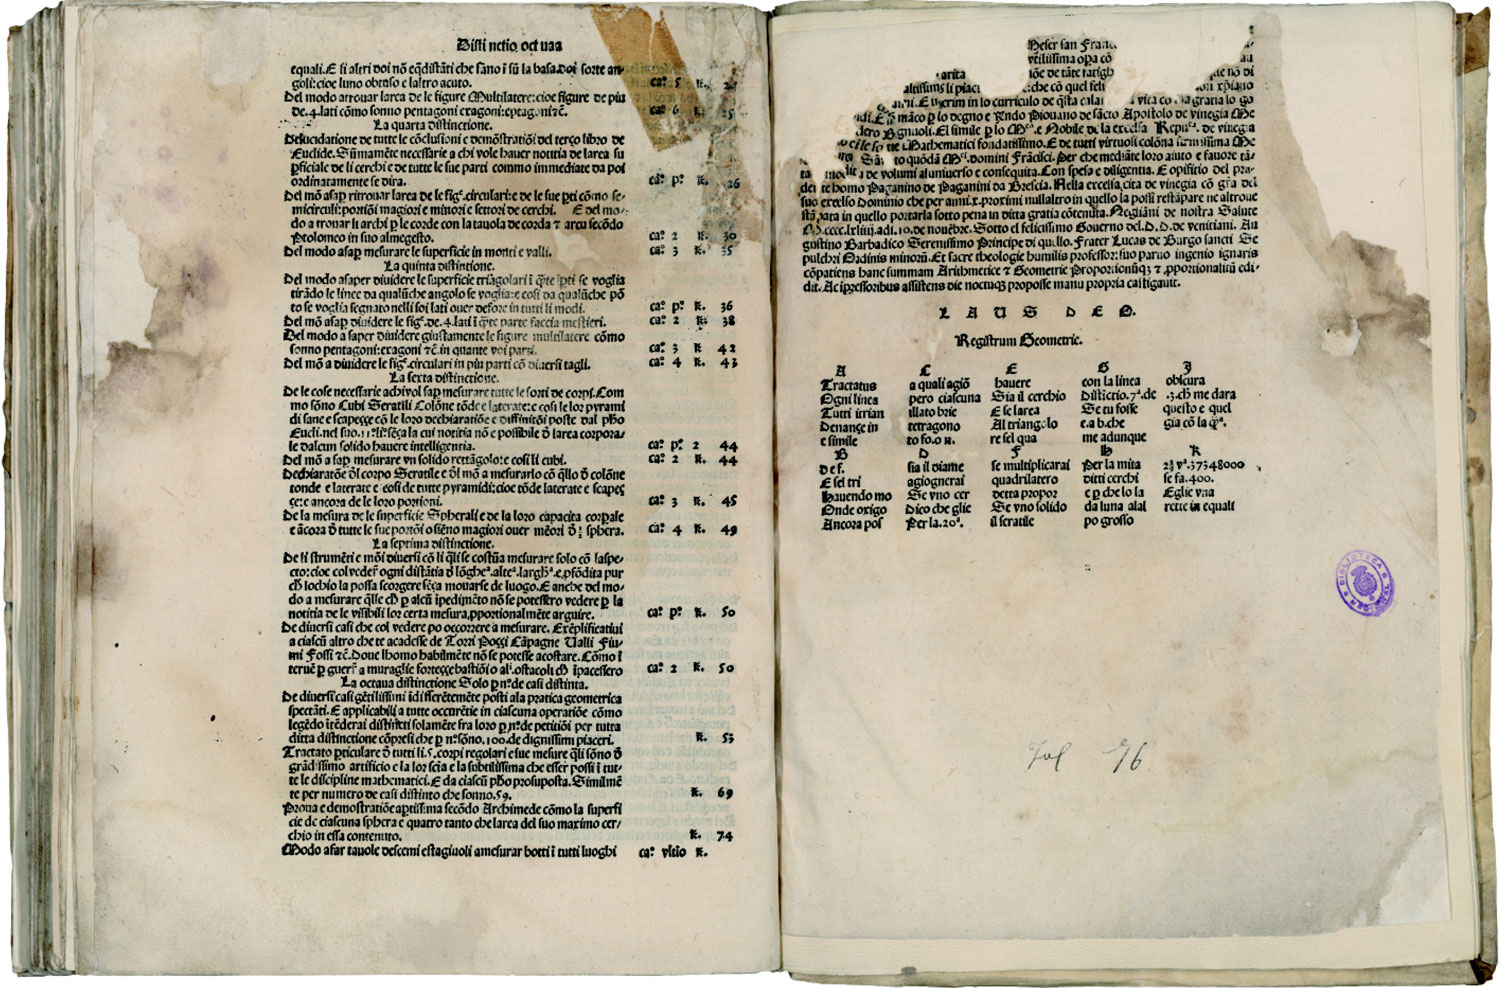 Disti nctio oct uaa
equali. E si altri doi nõ eqdistãti che sano ĩ sũ la basa. doi sorte an-
goli: cioe luno obtuso e laltro acuto. caº. 5 k.
Del modo atrouar larea de le figure Multilatere: cioe figure de piu
de .4. lati cõmo sonno pentagoni exagoni: eptagoni ⁊c̃. caº. 6 k. 25
La quarta distinctione.
Delucidatione de tutte le cõclusioni e demõstratiõi del terço libro de
Euclide. Sũmamẽte necessarie a chi vole hauer notitia de larea su
ꝑficiale de li cerchi e de tutte le sue parti commo immediate da poi
ordinatamente se dira. caº. pº. k. 26
Del mõ asaꝑ ritrouar larea de le figᵉ. circulari: e de le sue ꝑti cõmo se-
micirculi: portiõi magiori e minori e settori de cerchi. E del mo-
do a trouar li archi ꝑ le corde con la tauola de corda ⁊ arcu secõdo
Ptolomeo in suo almegesto. caº. 2 k. 30
Del modo asaꝑ mesurare le superficie in monti e valli. caº. 3 k. 35
La quinta distinctione.
Del modo asaper diuidere le superficie triãgolari ĩ q̃te ꝑti se voglia
tirãdo le linee da qualũche angolo se voglia: e cosi da qualũche põ
to se voglia segnato nelli soi lati ouer defore in tutti li modi. caº. pº. k. 36
Del mõ asaꝑ diuidere le figᵉ. de .4. lati ĩ q̃te parte faccia mestieri. caº. 2 k. 38
Del modo a saper diuidere giustamente le figure multilatere cõmo
sonno pentagoni: exagoni ⁊c̃. in quante voi parti. caº. 3 k. 42
Del mõ a diuidere le figᵉ. circulari in piu parti cõ diuersi tagli. caº. 4 k. 43
La sexta distinctione.
De le cose necessarie achi vol saꝑ mesurare tutte le sorti de corpi. Com
mo sõno Cubi Seratili Colõne tõde e laterate: e cosi le lor pyrami
di sane e scapeççe cõ le loro dechiaratiõe e diffinitõi poste dal pho
Eucli. nel suo .11º. li. sẽça la cui notitia nõ e possibile ď larea corpora-
le dalcun solido hauere intelligentia. caº. pº. 2 44
Del mõ a saꝑ mesurare vn solido rettãgolo: e cosi li cubi. caº. 2 k. 44
Dechiaratõe ďl corpo Seratile e ďl mõ a mesurarlo cõ q̃llo ď colõne
tonde e laterate e cosi de tutte pyramidi: cioe tõde laterate e scapeç
çe: e ancora de le loro portioni. caº. 3 k. 45
De la mesura de le superficie Spherali e de la loro capacita corꝑale
e ãcora ď tutte le sue portõi o siẽno magiori ouer mẽori ď ½ sphera. caº. 4 k. 49
La septima distinctione.
De li strumẽti e mõi diuersi cõ li q̃li se costũa mesurare solo cõ laspe-
cto: cioe col veder̃ ogni distãtia ď lõgheᵃ. alteᵃ. larghᵃ. e ꝓfõdita pur
ch̃ lochio la possa scorgere sẽça mouarse de luogo. E anche del mo-
do a mesurare q̃lle ch̃ ꝑ alcũ ĩpedimẽto nõ se potessero vedere ꝑ la
notitia de le visibili lor certa mesura, ꝓportionalmẽte arguire. caº. pº. k. 50
De diuersi casi che col vedere po occorrere a mesurare. Exẽplificatiui
a ciascũ altro che te acadesse de Torri Poççi Cãpagne Ualli Fiu-
mi Fossi ⁊c̃. Doue lhomo habilmẽte nõ se potesse acostare. Cõmo ĩ
teruẽ ꝑ guerr̃ a muraglie forteççe bastiõi o alⁱ. ostacoli ch̃ ĩpacessero caº. 2 k. 50
La octaua distinctione Solo ꝑ nº. de casi distinta.
De diuersi casi gẽtilissimi ĩdifferẽtemẽte posti ala pratica geometrica
spectãti. E applicabili a tutte occurẽtie in ciascuna operatiõe cõmo
legẽdo ĩtẽderai distincti solamẽte fra loro ꝑ nº. de petitiõi per tutta
ditta distinctione cõpresi che ꝑ nº. sõno .100. de dignissimi piaceri. k. 53
Tractato ꝑticulare ď tutti li .5. corpi regolari e sue mesure q̃li sõno ď
grãdissimo artificio e la lor sciẽa e la subtilissima che esser possi ĩ tut-
te le discipline mathematici. E da ciascũ pho prosuposta. Similmẽ
te per numero de casi distinto che sonno .59. k. 69
Proua e demostratiõe aptissima secõdo Archimede cõmo la superfi
cie de ciascuna sphera e quatro tanto che larea del suo maximo cer-
chio in essa contenuto. k. 74
Modo afar tauole descemi e stagiuoli amesurar botti ĩ tutti luoghi caº. vltĩo k.
Meser san Franc
vtilissima opa cõ
arita iõe de tãte fatigh que nõ di
altissimo li piac che cõ quel feli xp̃iano
E uerim in lo curriculo de q̃sta cala vita gratia lo go
maco ꝑ lo degno e Rẽdo Piouano de sãcto Apostolo de vinegia Me
Bgnuoli. El simile ꝑ lo Mᶜᵒ. e Nobile de la excelsa Repuᶜᵃ. de vinegia
Mathematici fondatissimo. E de tutti virtuosi colõna firmissima Me
to quõdã Mᶜⁱ. domini Frãcisci. Per che mediãte loro aiuto e fauore tã-
ta de volumi al uniuerso e consequita. Con spesa e diligentia. E opifitio del pru-
dẽte homo Paganino de Paganini da Brescia. Nella excelsa cita de vinegia cõ gr̃a del
suo excelso Dominio che per anni .x. proximi nullaltro in quello la possi restãpare ne altroue
stãpata in quello portarla sotto pena in ditta gratia cõtenuta. Negliãni de nostra Salute
M. cccc. lxliiij. adi .10. de nouẽbre. Sotto el felicissimo Gouerno del .D. D. de venitiani. Au
gustino Barbadico Serenissimo Principe di quello. Frater Lucas de Burgo sancti Se
pulchri Ordinis minorũ. Et sacre theologie humilis professor: suo paruo ingenio ignaris
cõpatiens hanc summam Arithmetice ⁊ Geometrie Proportionũq; ⁊ ꝓportionalitũ edi
dit. Ac ĩpressoribus assistens die noctuq; proposse manu propria castigauit.
L A U S D E O.
Registrum Geometrie.
A C E G I
Tractatus a quali agiõ hauere con la linea obscura
Ogni linea pero ciascuna Sia il cerchio Distictio .7ª. de .3. ch̃ me dara
Tutti itrian illato brie E se larea Se tu fosse questo e quel
Denançe in tetragono Al triangolo e. a b. che gia cõ la qᵃ.
e simile to fo. o n. re sel qua me adunque
B D F H K
d e f. sia il diame se multiplicarai Per la mita 37348000
E sel tri agiognerai quadrilatero ditti cerchi se fa. 400.
Hauendo mo Se vno cer detta propor e ꝑ che lo la E glie vna
Onde oxigo Dico che glie Se vno solido da luna alal retie in equali
Ancora pos Per la .20ª. il seratile po grosso
BIBLIOTECA
Fol 76